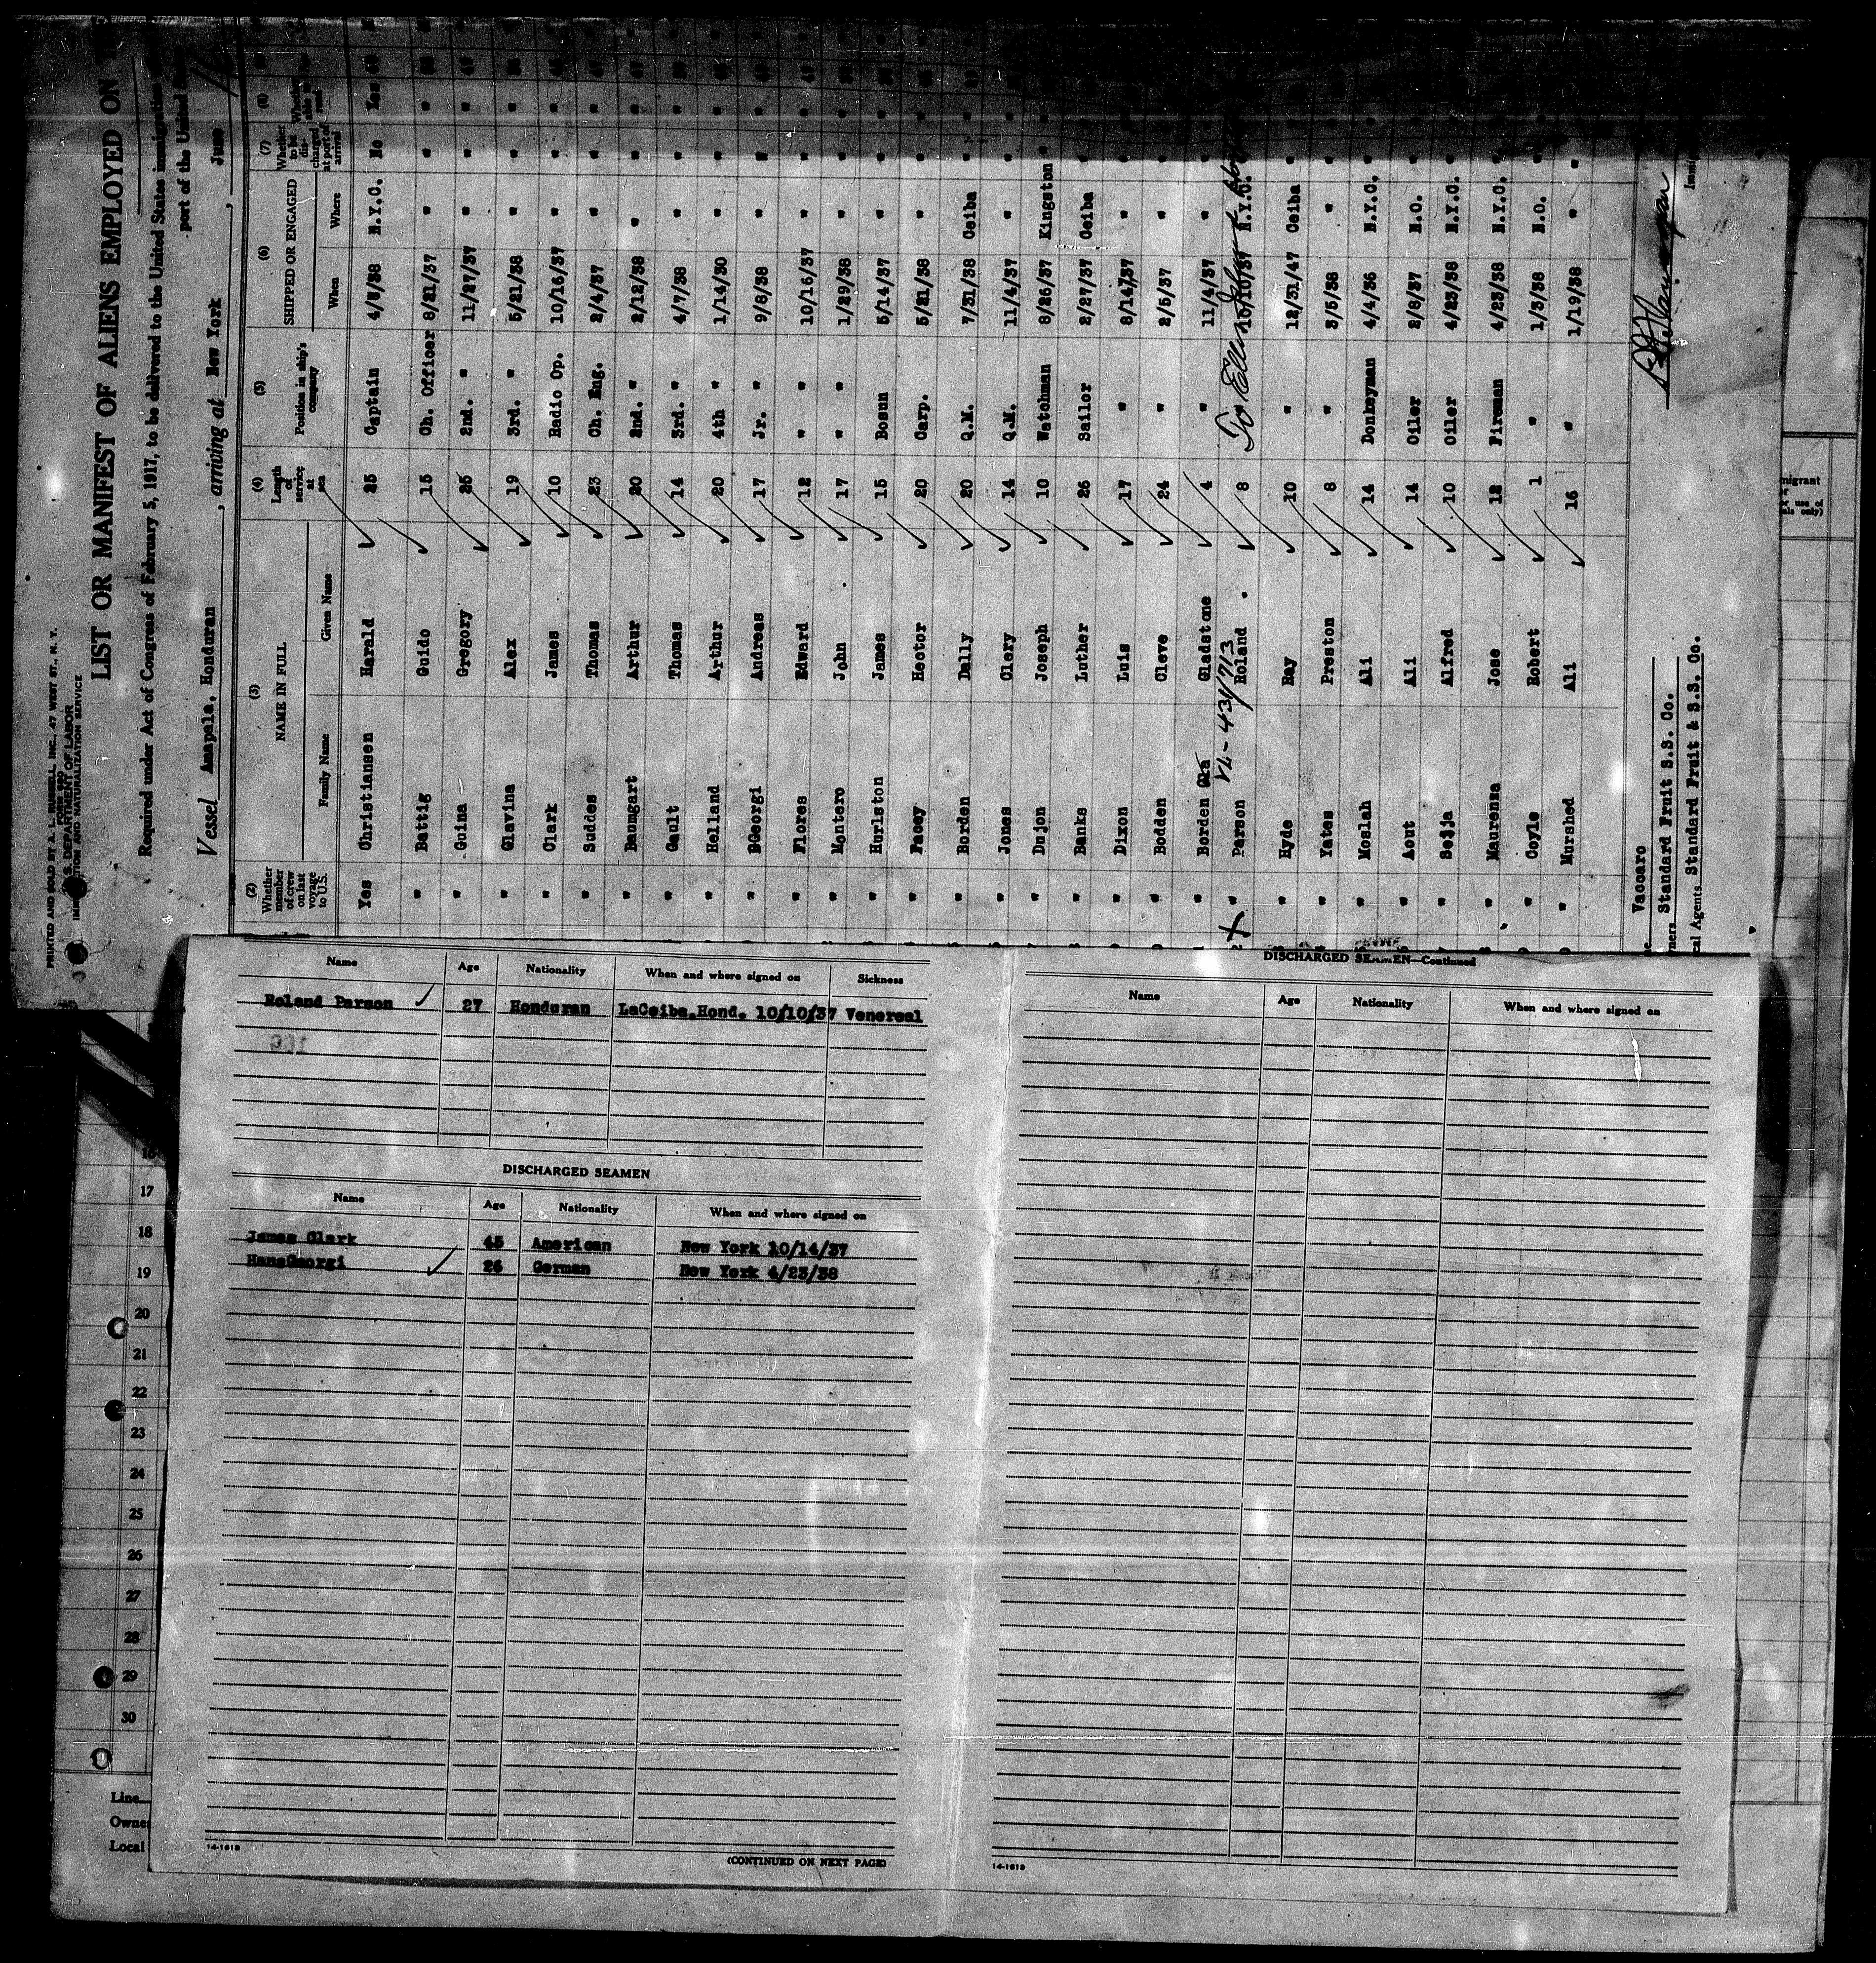 PRINTED AND SOLD BY A. L. RUSSELL, INC., 47 WEST ST., N. Y.
FORM 680
S. DEPARTMENT OF LABOR
IMMIGRATION AND NATURALIZATION SERVICE
LIST OR MANIFEST OF ALIENS EMPLOYED ON
Required under Act of Congress of February 5, 1917, to be delivered to the United States immigration
port of the United
Vessel Amapala, Honduran, arriving at New York, June
(2) Whether member of crew on last voyage to U.S. (3) NAME IN FULL Family Name Given Name (4) Length of service at sea (5) Position in ship's company (6) SHIPPED OR ENGAGED When Where (7) Whether to be discharged at port of arrival (8)
Yes Christiansen Harald 25 Captain 4/5/38 N.Y.C. No Yes
" Battig Guido 15 Ch. Officer 8/21/37 " " "
" Guina Gregory 25 2nd. " 11/27/37 " " "
" Glavina Alex 19 3rd. " 5/21/38 " " "
" Clark James 10 Radio Op. 10/16/37 " " "
" Suddes Thomas 23 Ch. Eng. 2/4/37 " " "
" Baumgart Arthur 20 2nd. " 2/12/38 " " "
" Gault Thomas 14 3rd. " 4/7/38 " " "
" Holland Arthur 20 4th " 1/14/30 " " "
" DGeorgi Andreas 17 Jr. " 9/8/38 " " "
" Flores Edward 12 " " 10/16/37 " " "
" Montero John 17 " " 1/29/38 " " "
" Hurlston James 15 Bosun 5/14/37 " " "
" Pacey Hector 20 Carp. 5/21/38 " " "
" Borden Dally 20 Q.M. 7/31/38 Ceiba " "
" Jones Clery 14 Q.M. 11/4/37 " " "
" Dujon Joseph 10 Watchman 8/26/37 Kingston " "
" Banks Luther 26 Sailor 2/27/37 Ceiba " "
" Dixon Luis 17 " 8/14/37 " " "
" Bodden Cleve 24 " 2/5/37 " " "
" Borden Gla Gladstone 4 " 11/4/37 " " "
X " Parson Roland 8 10/10/37 N.Y.C.
" Hyde Ray 10 " 12/31/47 Ceiba " "
" Yates Preston 8 " 3/5/38 " " "
" Moslah Ali 14 Donkeyman 4/4/36 N.Y.C. "
" Aout Ali 14 Oiler 2/8/37 N.O. "
" Sedja Alfred 10 Oiler 4/23/38 N.Y.C. "
" Maurenza Jose 12 Fireman 4/23/38 N.Y.C. "
" Coyle Robert 1 " 1/3/38 N.O. "
" Murshed Ali 16 " 1/19/38 " "
Vaccaro
Standard Fruit S.S. Co.
cal Agents Standard Fruit & S.S. Co.
migrant
use of
only)
Name Age Nationality When and where signed on Sickness
Roland Parson 27 Honduran LaCeiba.Hond. 10/10/37 Venereal
DISCHARGED SEAMEN
Name Age Nationality When and where signed on
James Clark 45 American New York 10/14/37
HansGeorgi 26 German New York 4/23/38
14-1618
(CONTINUED ON NEXT PAGE)
DISCHARGED SEAMEN—Continued
Name Age Nationality When and where signed on
14-1618
16
17
18
19
20
21
22
23
24
25
26
27
28
29
30
Line
Owne
Local